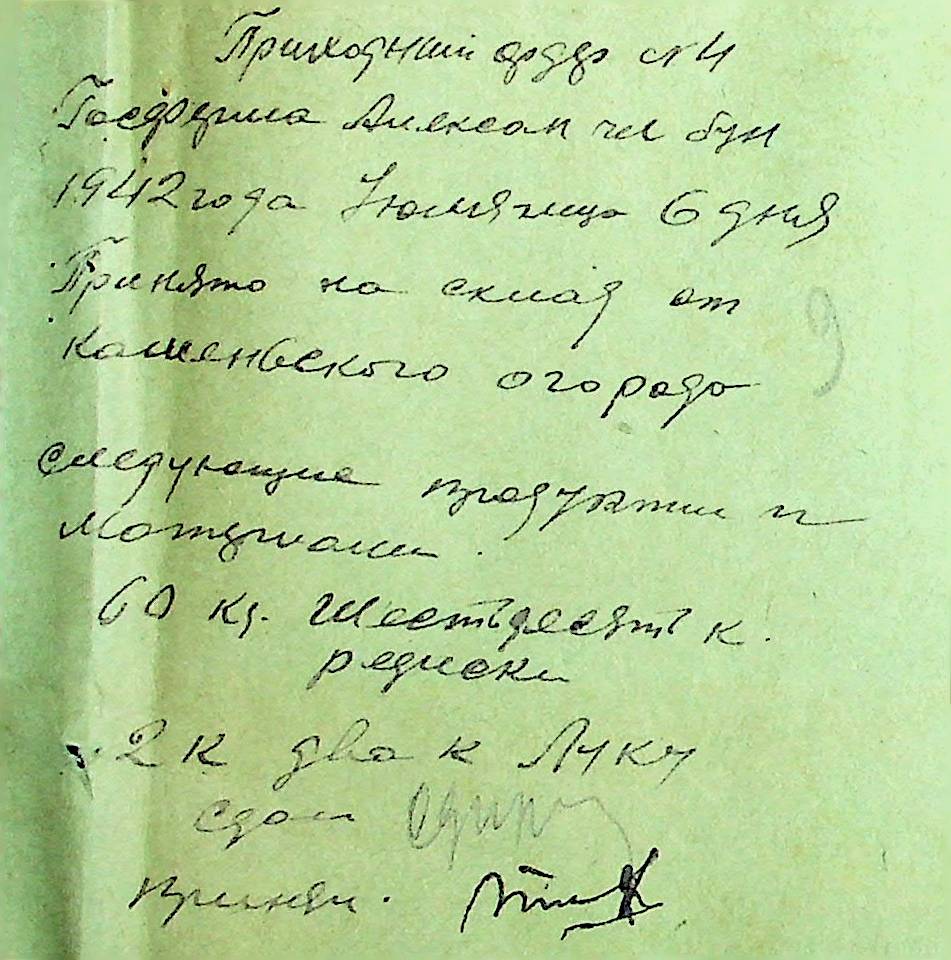 Приходний ордер №4
Госферма Алексан
1942 года Июля м-ца 6 дня
Принято на склад от
Каменьского огорода
следующие продукти и
материали.
60 кг. Шестьдесять к.
редиски
2 к два к Луку
сдал
принял.